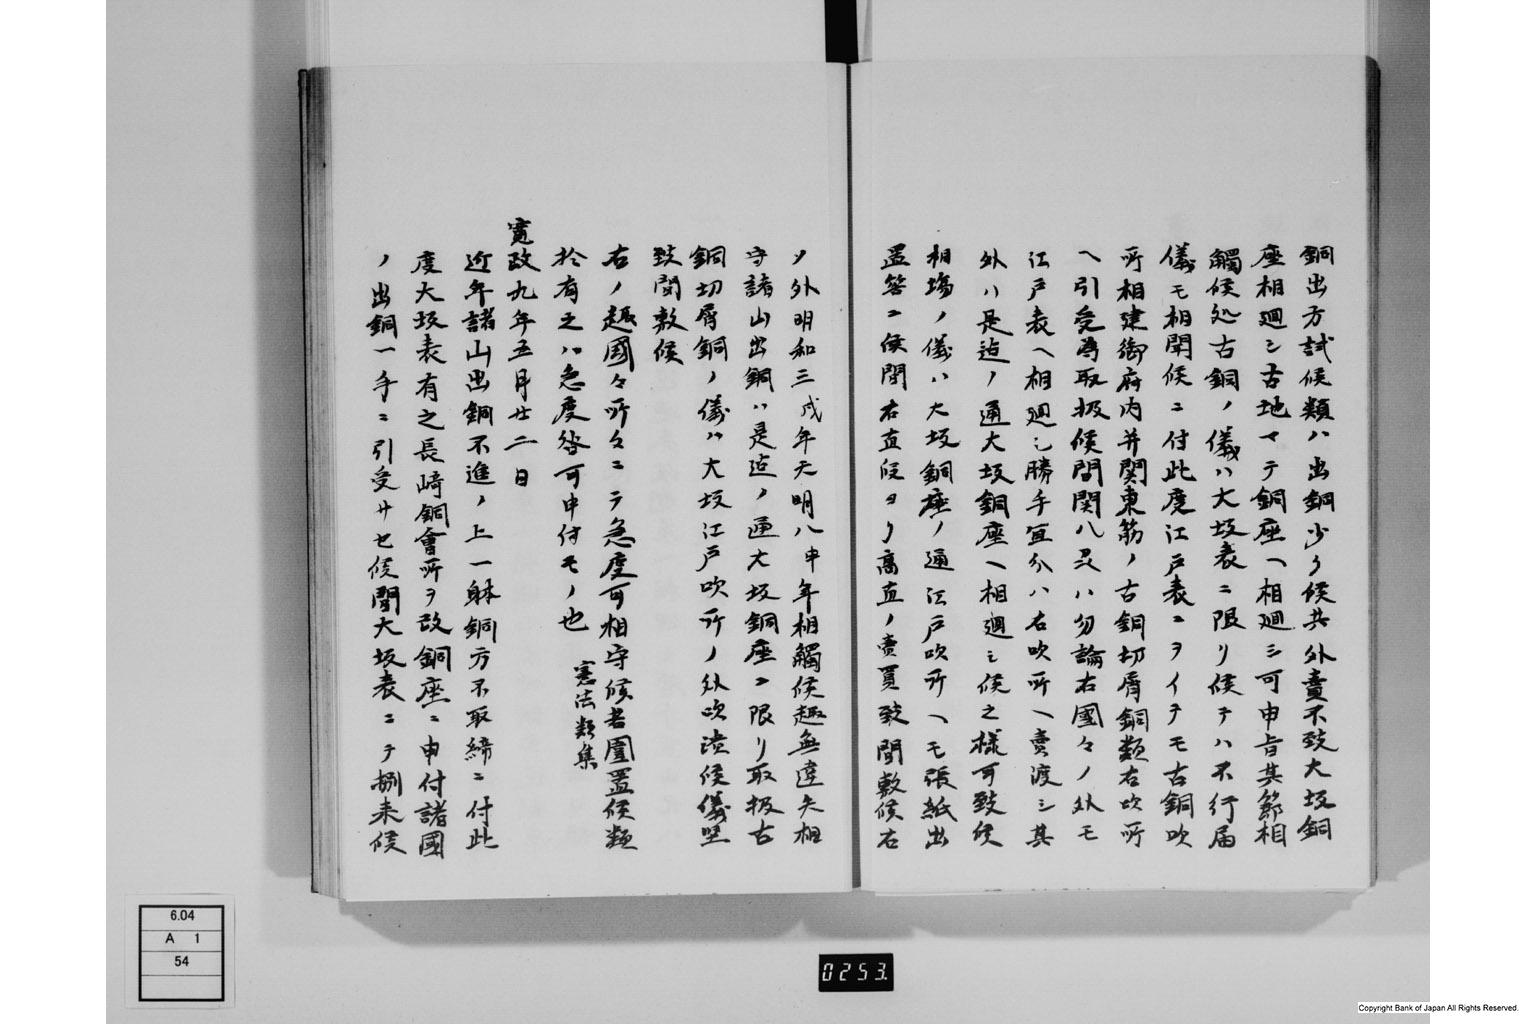 銅出方試候類ハ出銅少ク候共外賣不致大坂銅
座相廻シ古地マテ銅座ヘ相廻シ可申旨其節相
觸候処古銅ノ儀ハ大坂表ニ限リ候テハ不行届
儀モ相聞候ニ付此度江戸表ニヲイテモ古銅吹
所相建御府内并関東筋ノ古銅切屑銅類右吹所
ヘ引受為取扱候間関八州ハ勿論右國々ノ外モ
江戸表ヘ相廻シ勝手宜分ハ右吹所ヘ賣渡シ其
外ハ是迠ノ通大坂銅座ヘ相廻シ候之様可致候
相場ノ儀ハ大坂銅座ノ通江戸吹所ヘモ張紙出
置筈ニ候間右直段ヨリ高直ノ賣買致間敷候右
ノ外明和三戌年天明八申年相觸候趣無違失相
守諸山出銅ハ是迠ノ通大坂銅座ニ限リ取扱古
銅切屑銅ノ儀ハ大坂江戸吹所ノ外吹潰候儀堅
致間敷候
右ノ趣國々所々ニテ急度可相守候若圍置候類
於有之ハ急度咎可申付モノ也
憲法類集
寛政九年五月廿二日
近年諸山出銅不進ノ上一躰銅方不取締ニ付此
度大坂表有之長崎銅會所ヲ改銅座ニ申付諸國
ノ出銅一手ニ引受サセ候間大坂表ニテ捌来候
0253.
6.04
A 1
54
Copyright Bank of Japan All Rights Reserved.